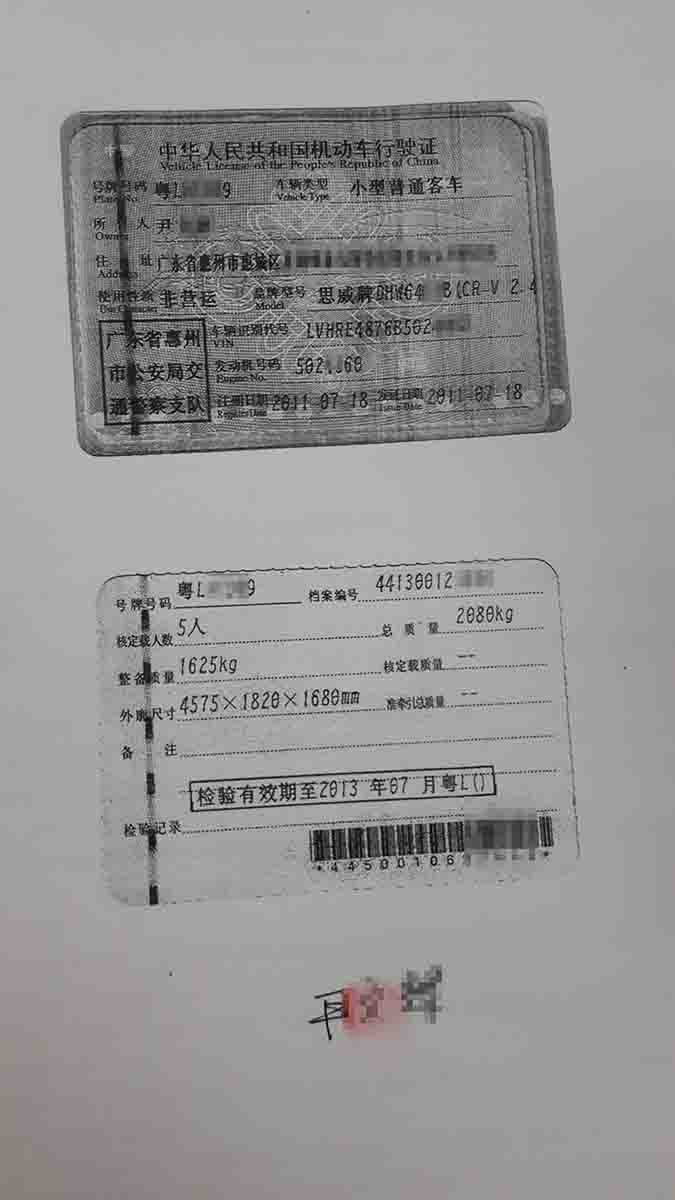 中华人民共和国机动车行驶证
Vehicle License of the People's Republic of China
号牌号码 粤L 9 车辆类型 小型普通客车
Plate No. Vehicle Type
所有人 尹
Owner
住址 广东省惠州市惠城区
Address
使用性质 非营运 品牌型号 思威牌DHW64 B(CR-V 2.4
Use Character Model
广东省惠州 车辆识别代号 LVHRE4876B502
VIN
市公安局交 发动机号码 502 60
Engine No.
通警察支队 注册日期 2011-07-18 发证日期 2011-07-18
Register Date Issue Date
号牌号码 粤L 9 档案编号 44130012
核定载人数 5人 总质量 2080kg
整备质量 1625kg 核定载质量 --
外廓尺寸 4575×1820×1680mm 准牵引总质量 --
备注
检验有效期至2013 年07 月粤L()
检验记录
*44500106 *